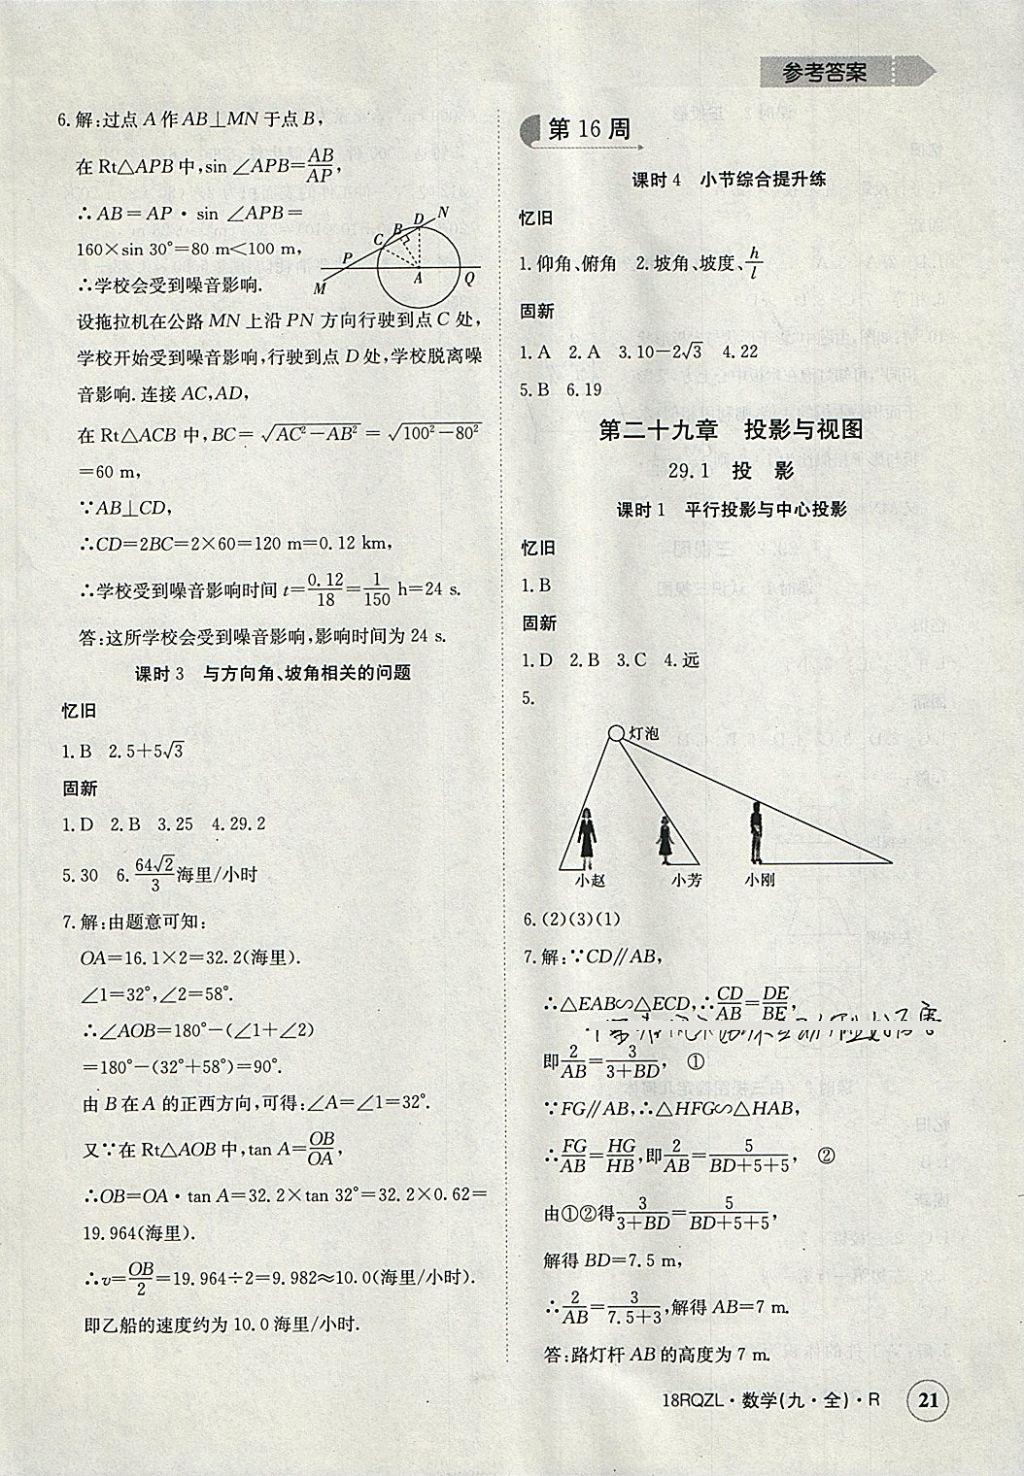 参考答案
6.解:过点A作AB⊥MN于点B,
在Rt△APB中,sin ∠APB=AB/AP,
∴AB=AP·sin ∠APB=
160×sin 30°=80 m<100 m,
∴学校会受到噪音影响.
N
D
B
C
P
M
A
Q
设拖拉机在公路MN上沿PN方向行驶到点C处,
学校开始受到噪音影响,行驶到点D处,学校脱离噪
音影响.连接AC,AD,
在Rt△ACB中,BC=√(AC²-AB²)=√(100²-80²)
=60 m,
∵AB⊥CD,
∴CD=2BC=2×60=120 m=0.12 km,
∴学校受到噪音影响时间t=0.12/18=1/150 h=24 s.
答:这所学校会受到噪音影响,影响时间为24 s.
课时3 与方向角、坡角相关的问题
忆旧
1.B 2.5+5√3
固新
1.D 2.B 3.25 4.29.2
5.30 6.64√2/3海里/小时
7.解:由题意可知:
OA=16.1×2=32.2(海里).
∠1=32°,∠2=58°.
∴∠AOB=180°-(∠1+∠2)
=180°-(32°+58°)=90°.
由B在A的正西方向,可得:∠A=∠1=32°.
又∵在Rt△AOB中,tan A=OB/OA,
∴OB=OA·tan A=32.2×tan 32°=32.2×0.62=
19.964(海里).
∴v=OB/2=19.964÷2=9.982≈10.0(海里/小时).
即乙船的速度约为10.0海里/小时.
第16周
课时4 小节综合提升练
忆旧
1.仰角、俯角 2.坡角、坡度、h/l
固新
1.A 2.A 3.10-2√3 4.22
5.B 6.19
第二十九章 投影与视图
29.1 投 影
课时1 平行投影与中心投影
忆旧
1.B
固新
1.D 2.B 3.C 4.远
5.
灯泡
小赵 小芳 小刚
6.(2)(3)(1)
7.解:∵CD∥AB,
∴△EAB∽△ECD,∴CD/AB=DE/BE,
即2/AB=3/(3+BD), ①
∵FG∥AB,∴△HFG∽△HAB,
∴FG/AB=HG/HB,即2/AB=5/(BD+5+5), ②
由①②得3/(3+BD)=5/(BD+5+5),
解得BD=7.5 m,
∴2/AB=3/(7.5+3),解得AB=7 m.
答:路灯杆AB的高度为7 m.
18RQZL·数学(九·全)·R 21